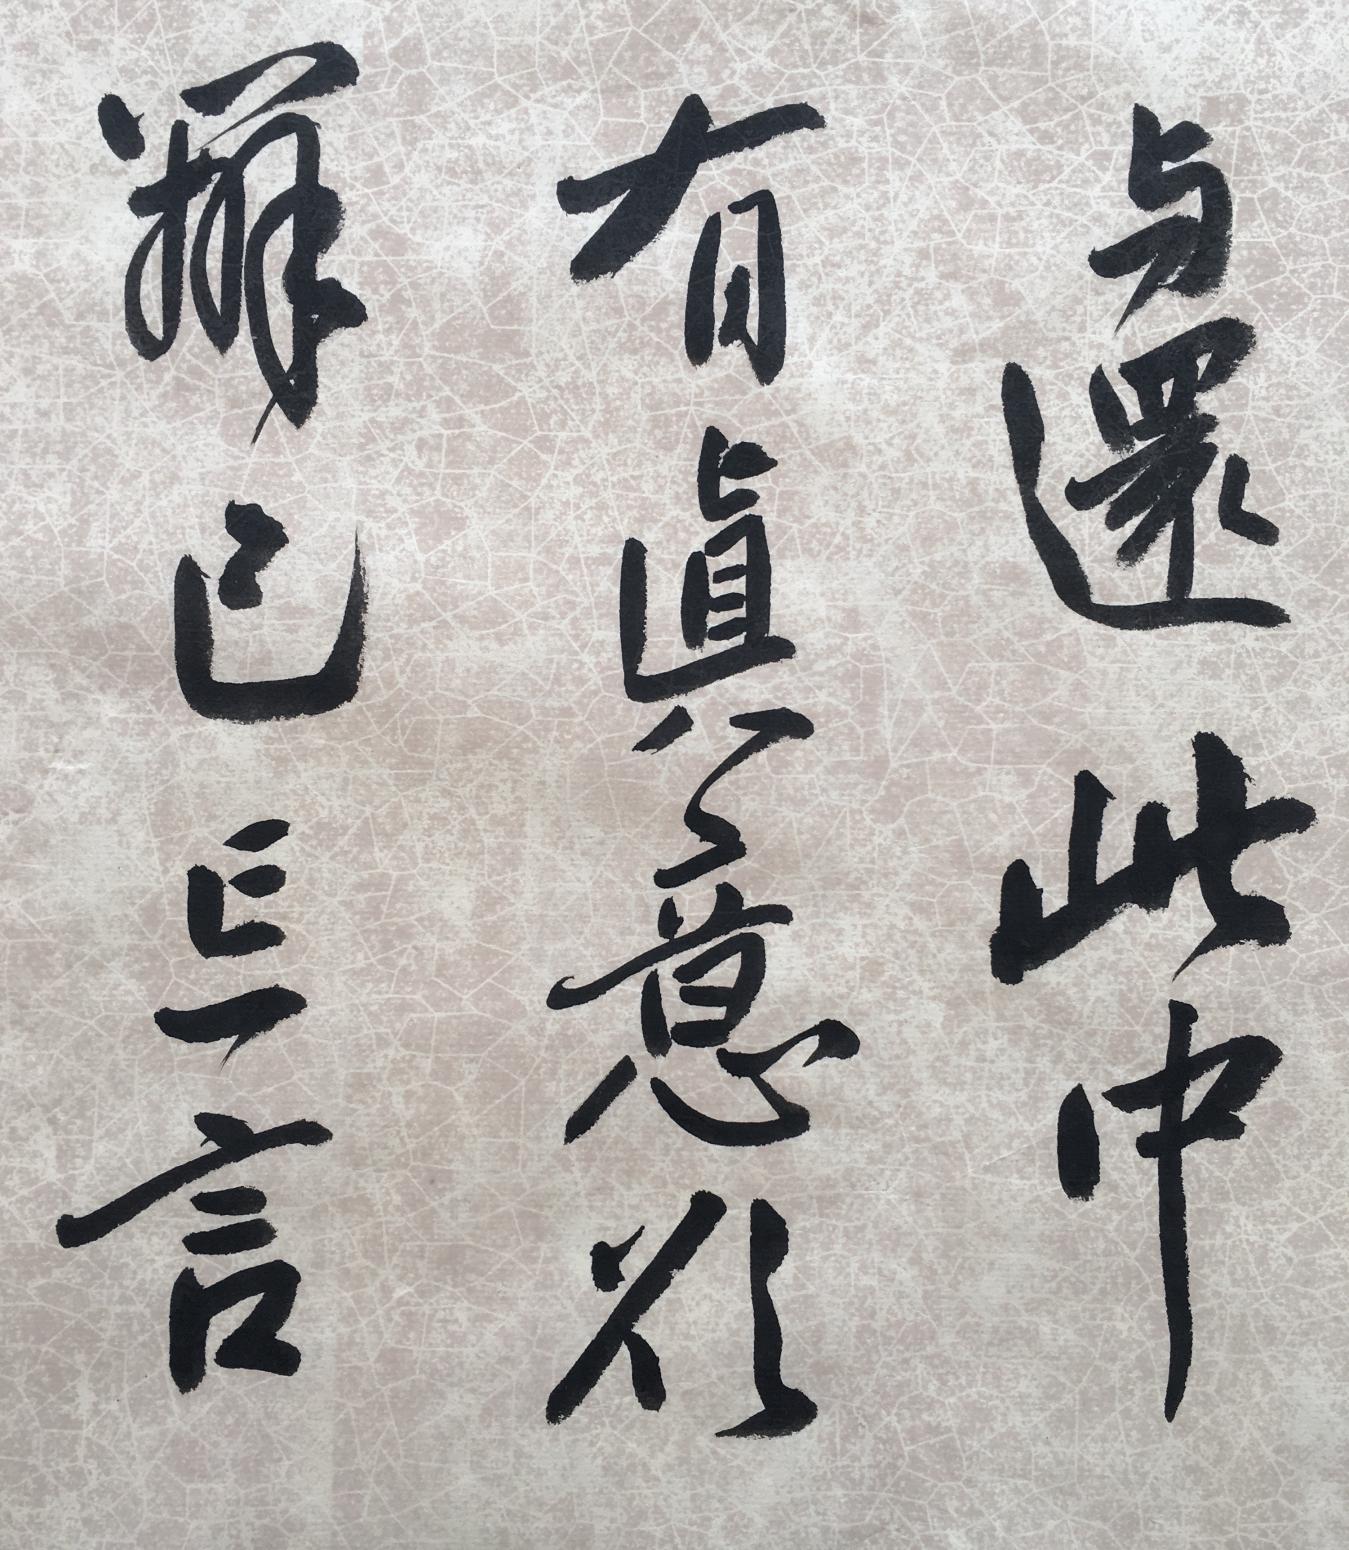 与還此中
有眞意欲
辨已忘言